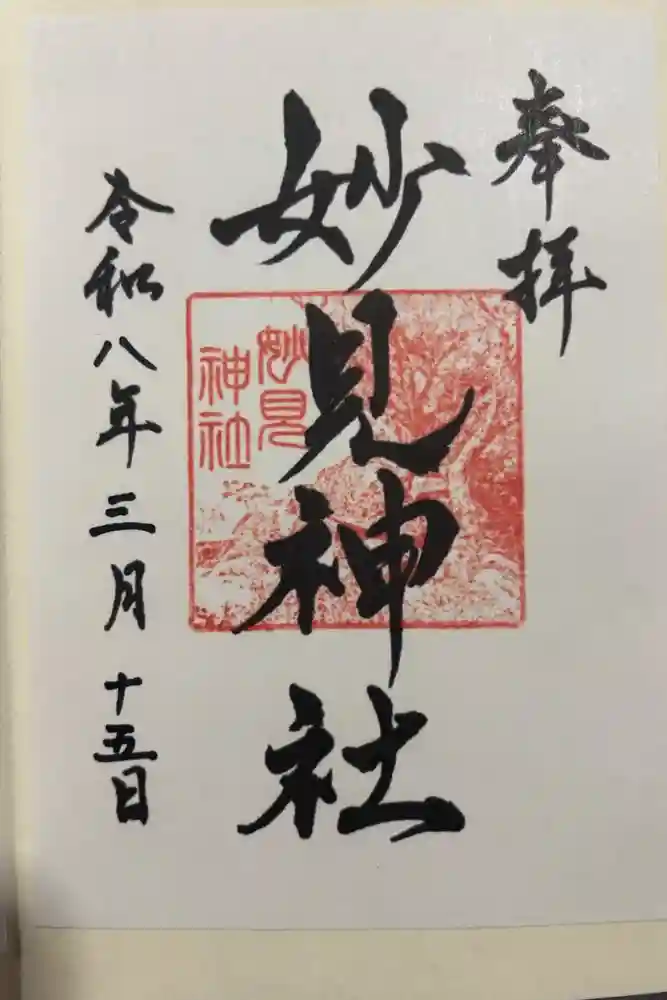 奉拝
妙見神社
妙見
神社
令和八年三月十五日